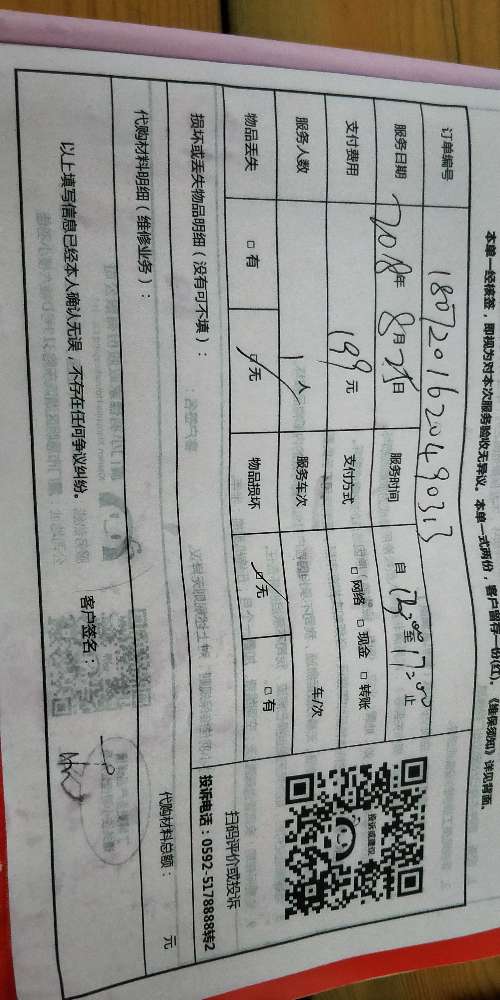 本单一经核签，即视为对本次服务验收无异议。本单一式两份，客户留存一份(红)。《维保须知》详见背面。
订单编号 180720162049 0313
服务日期 2018年8月25日 服务时间 自 13:00 至 17:00 止
支付费用 199 元 支付方式 □ 网络 □ 现金 □ 转账
服务人数 1 人 服务车次 车/次
物品丢失 □ 有 □ 无 物品损坏 □ 无 □ 有
投诉或建议
扫码评价或投诉
投诉电话：0592-5178888转2
损坏或丢失物品明细（没有可不填）：
代购材料明细（维修业务）：
代购材料总额： 元
以上填写信息已经本人确认无误，不存在任何争议纠纷。
客户签名：